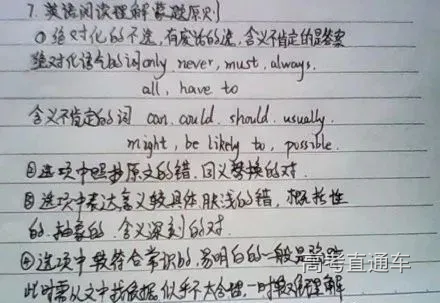 7. 英语阅读理解蒙题原则
①绝对化的不选,有废话的选,含义不肯定的是答案
绝对化语气的词 only. never, must, always.
all, have to
含义不肯定的词 can. could. should. usually.
might, be likely to, possible.
②选项中照抄原文的错. 同义替换的对.
③选项中表达意义较具体. 肤浅的错, 概括性
的. 抽象的. 含义深刻的对.
④选项中较符合常识的. 易明白的一般是
此时需从文中找依据. 似乎不大合理. 一时较难理解
高考直通车